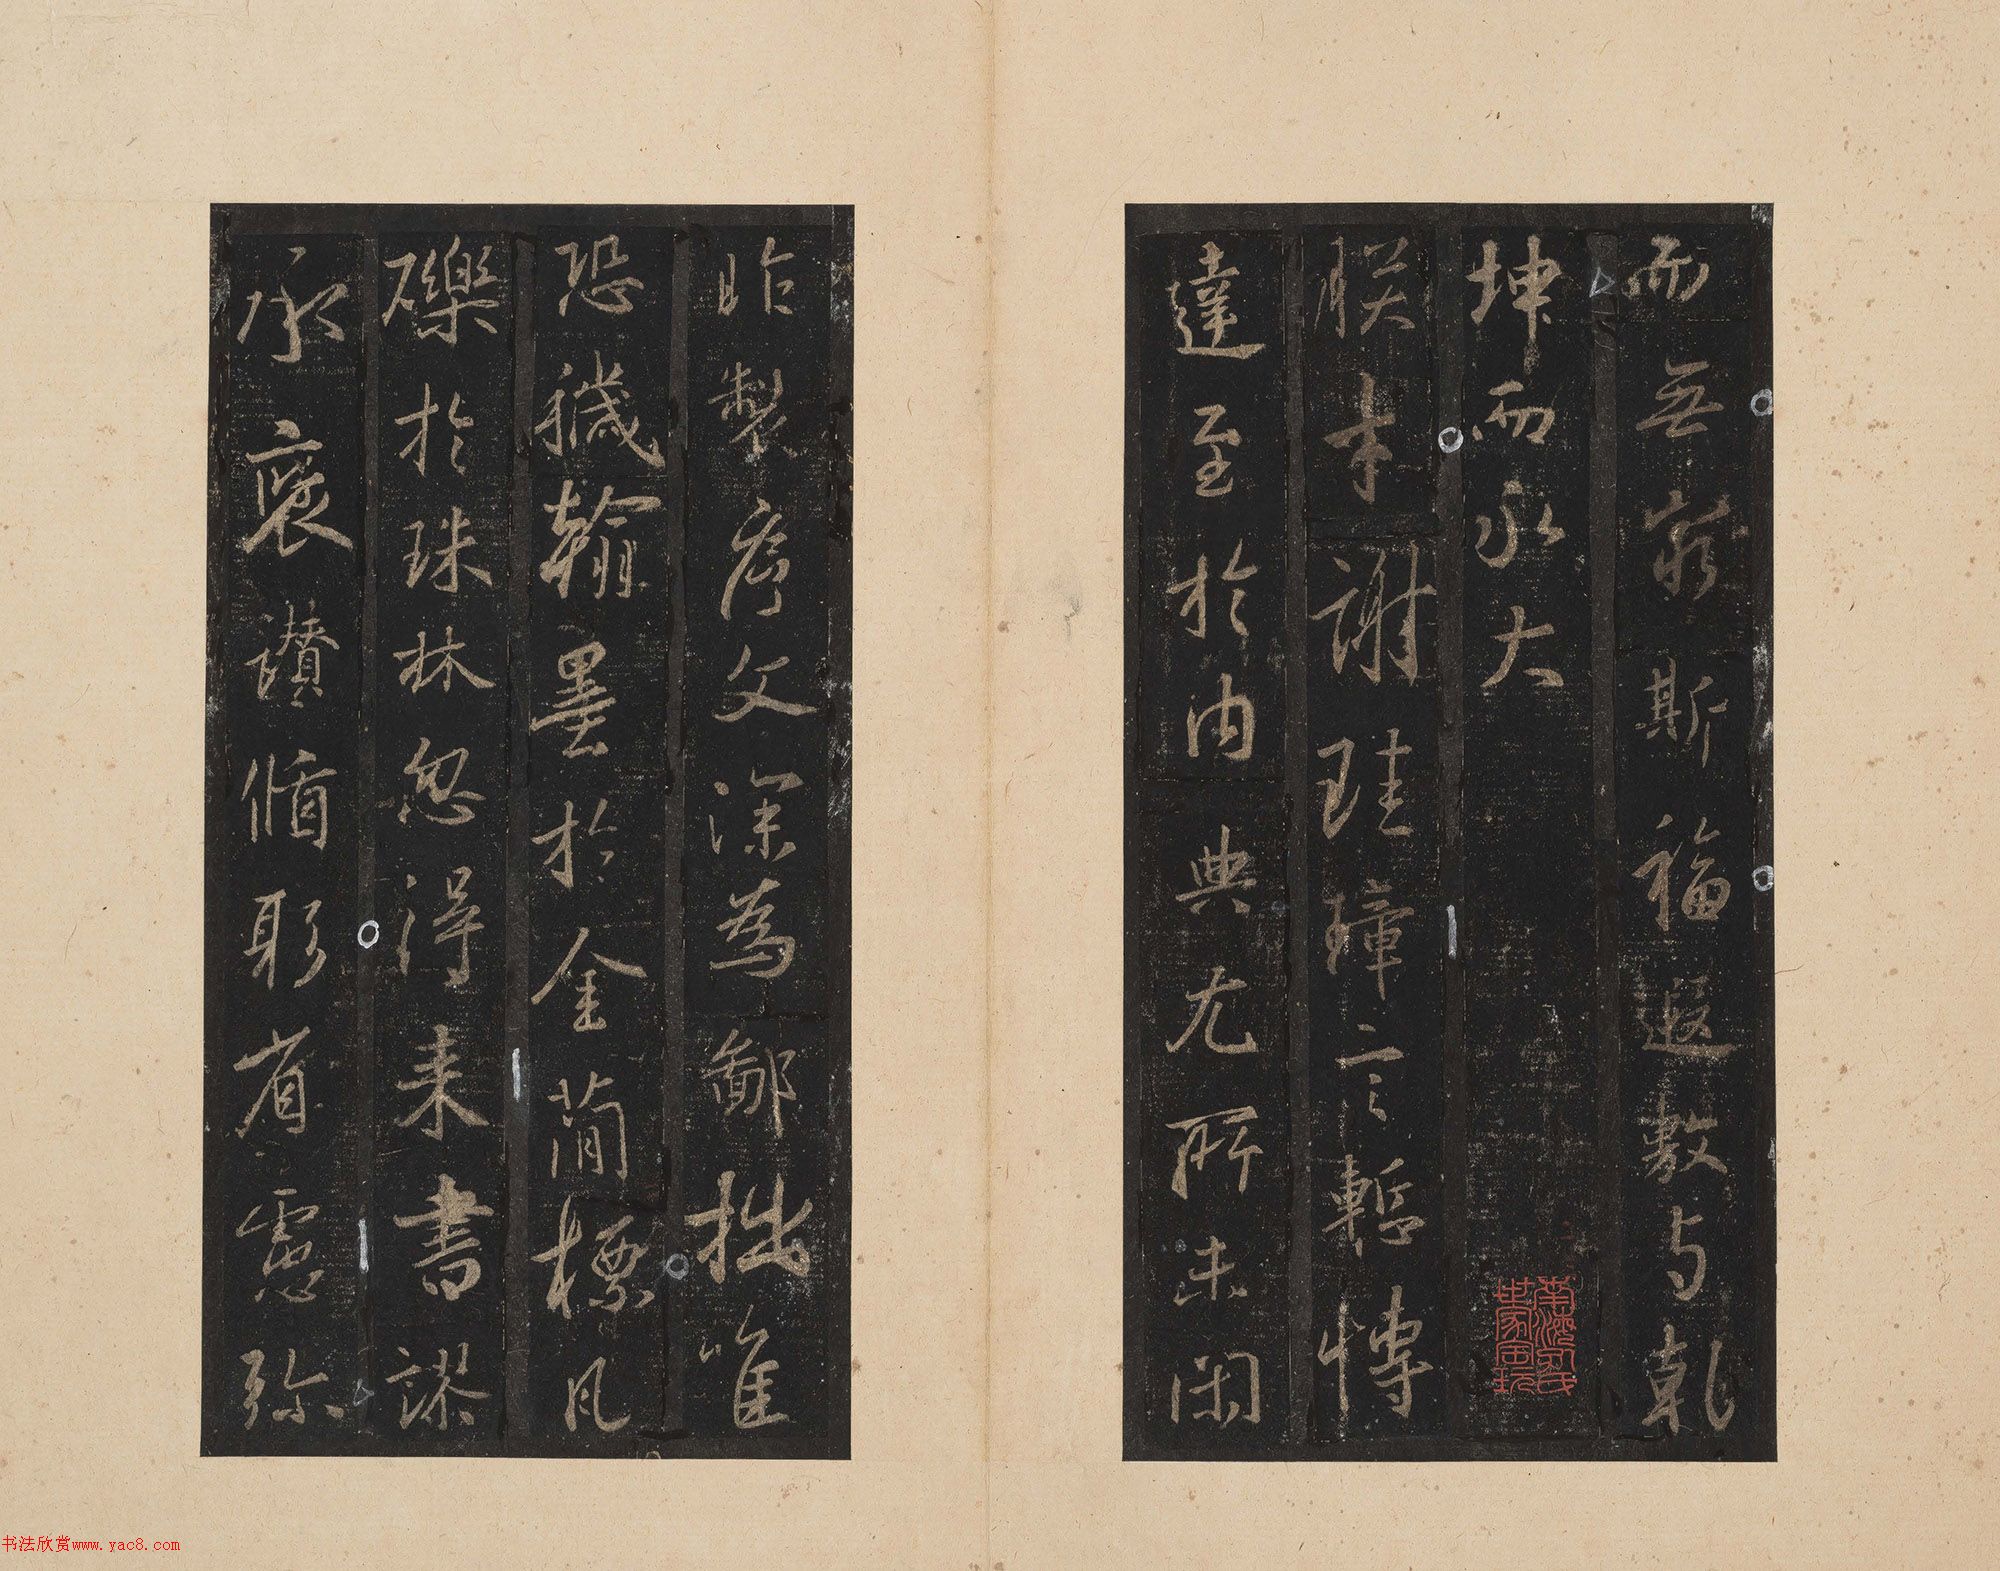 而無窮斯福遐敷与乾
坤而永大
朕才謝珪璋言慙博
達至於内典尤所未閑
昨製序文深為鄙拙唯
恐穢翰墨於金簡標凡
礫於珠林忽得来書謬
承褒讃循躬省慮弥
书法欣赏www.yac8.com